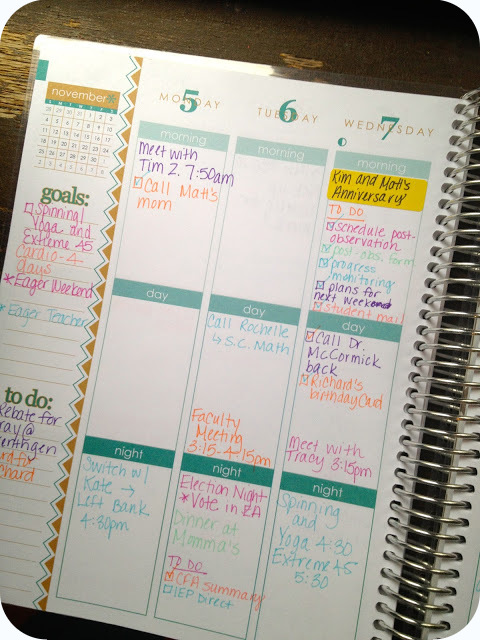 november
S M T W T F S
goals:
Spinning/
Yoga and
Extreme 45
Cardio-4-
days
*Eager Weekend
*Eager Teacher
to do:
Rebate for
MONDAY
5
morning
meet with
Tim Z. 7:50am
Call Matt's
mom
day
night
Switch w/
Kate →
Left Bank
4:30pm
TUESDAY
6
morning
day
Call Rochelle
↳ S.C. Math
Faculty
Meeting
3:15-4:15pm
night
Election Night
*Vote in EA
Dinner at
Momma's
TO DO
CFA summary
IEP Direct
WEDNESDAY
7
morning
Kim and Matt's
Anniversary
TO DO
schedule post-
observation
post-obs. form
progress
monitoring
plans for
next week
student mail
day
Call Dr.
McCormick
back
Richard's
birthday card
meet with
Tracy 3:15pm
night
Spinning
and
Yoga 4:30
Extreme 45
5:30